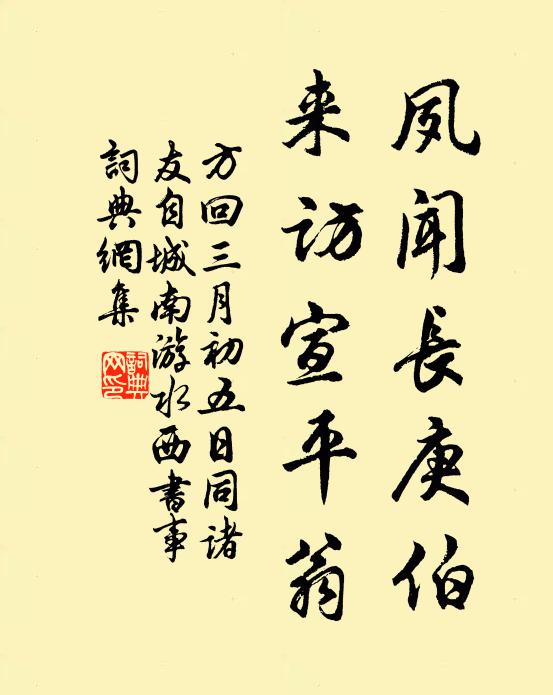 夙闻長庚伯
来訪宣平翁
方回三月初五日同诸
友自城南游水西書事
詞典網集
詞典
网印